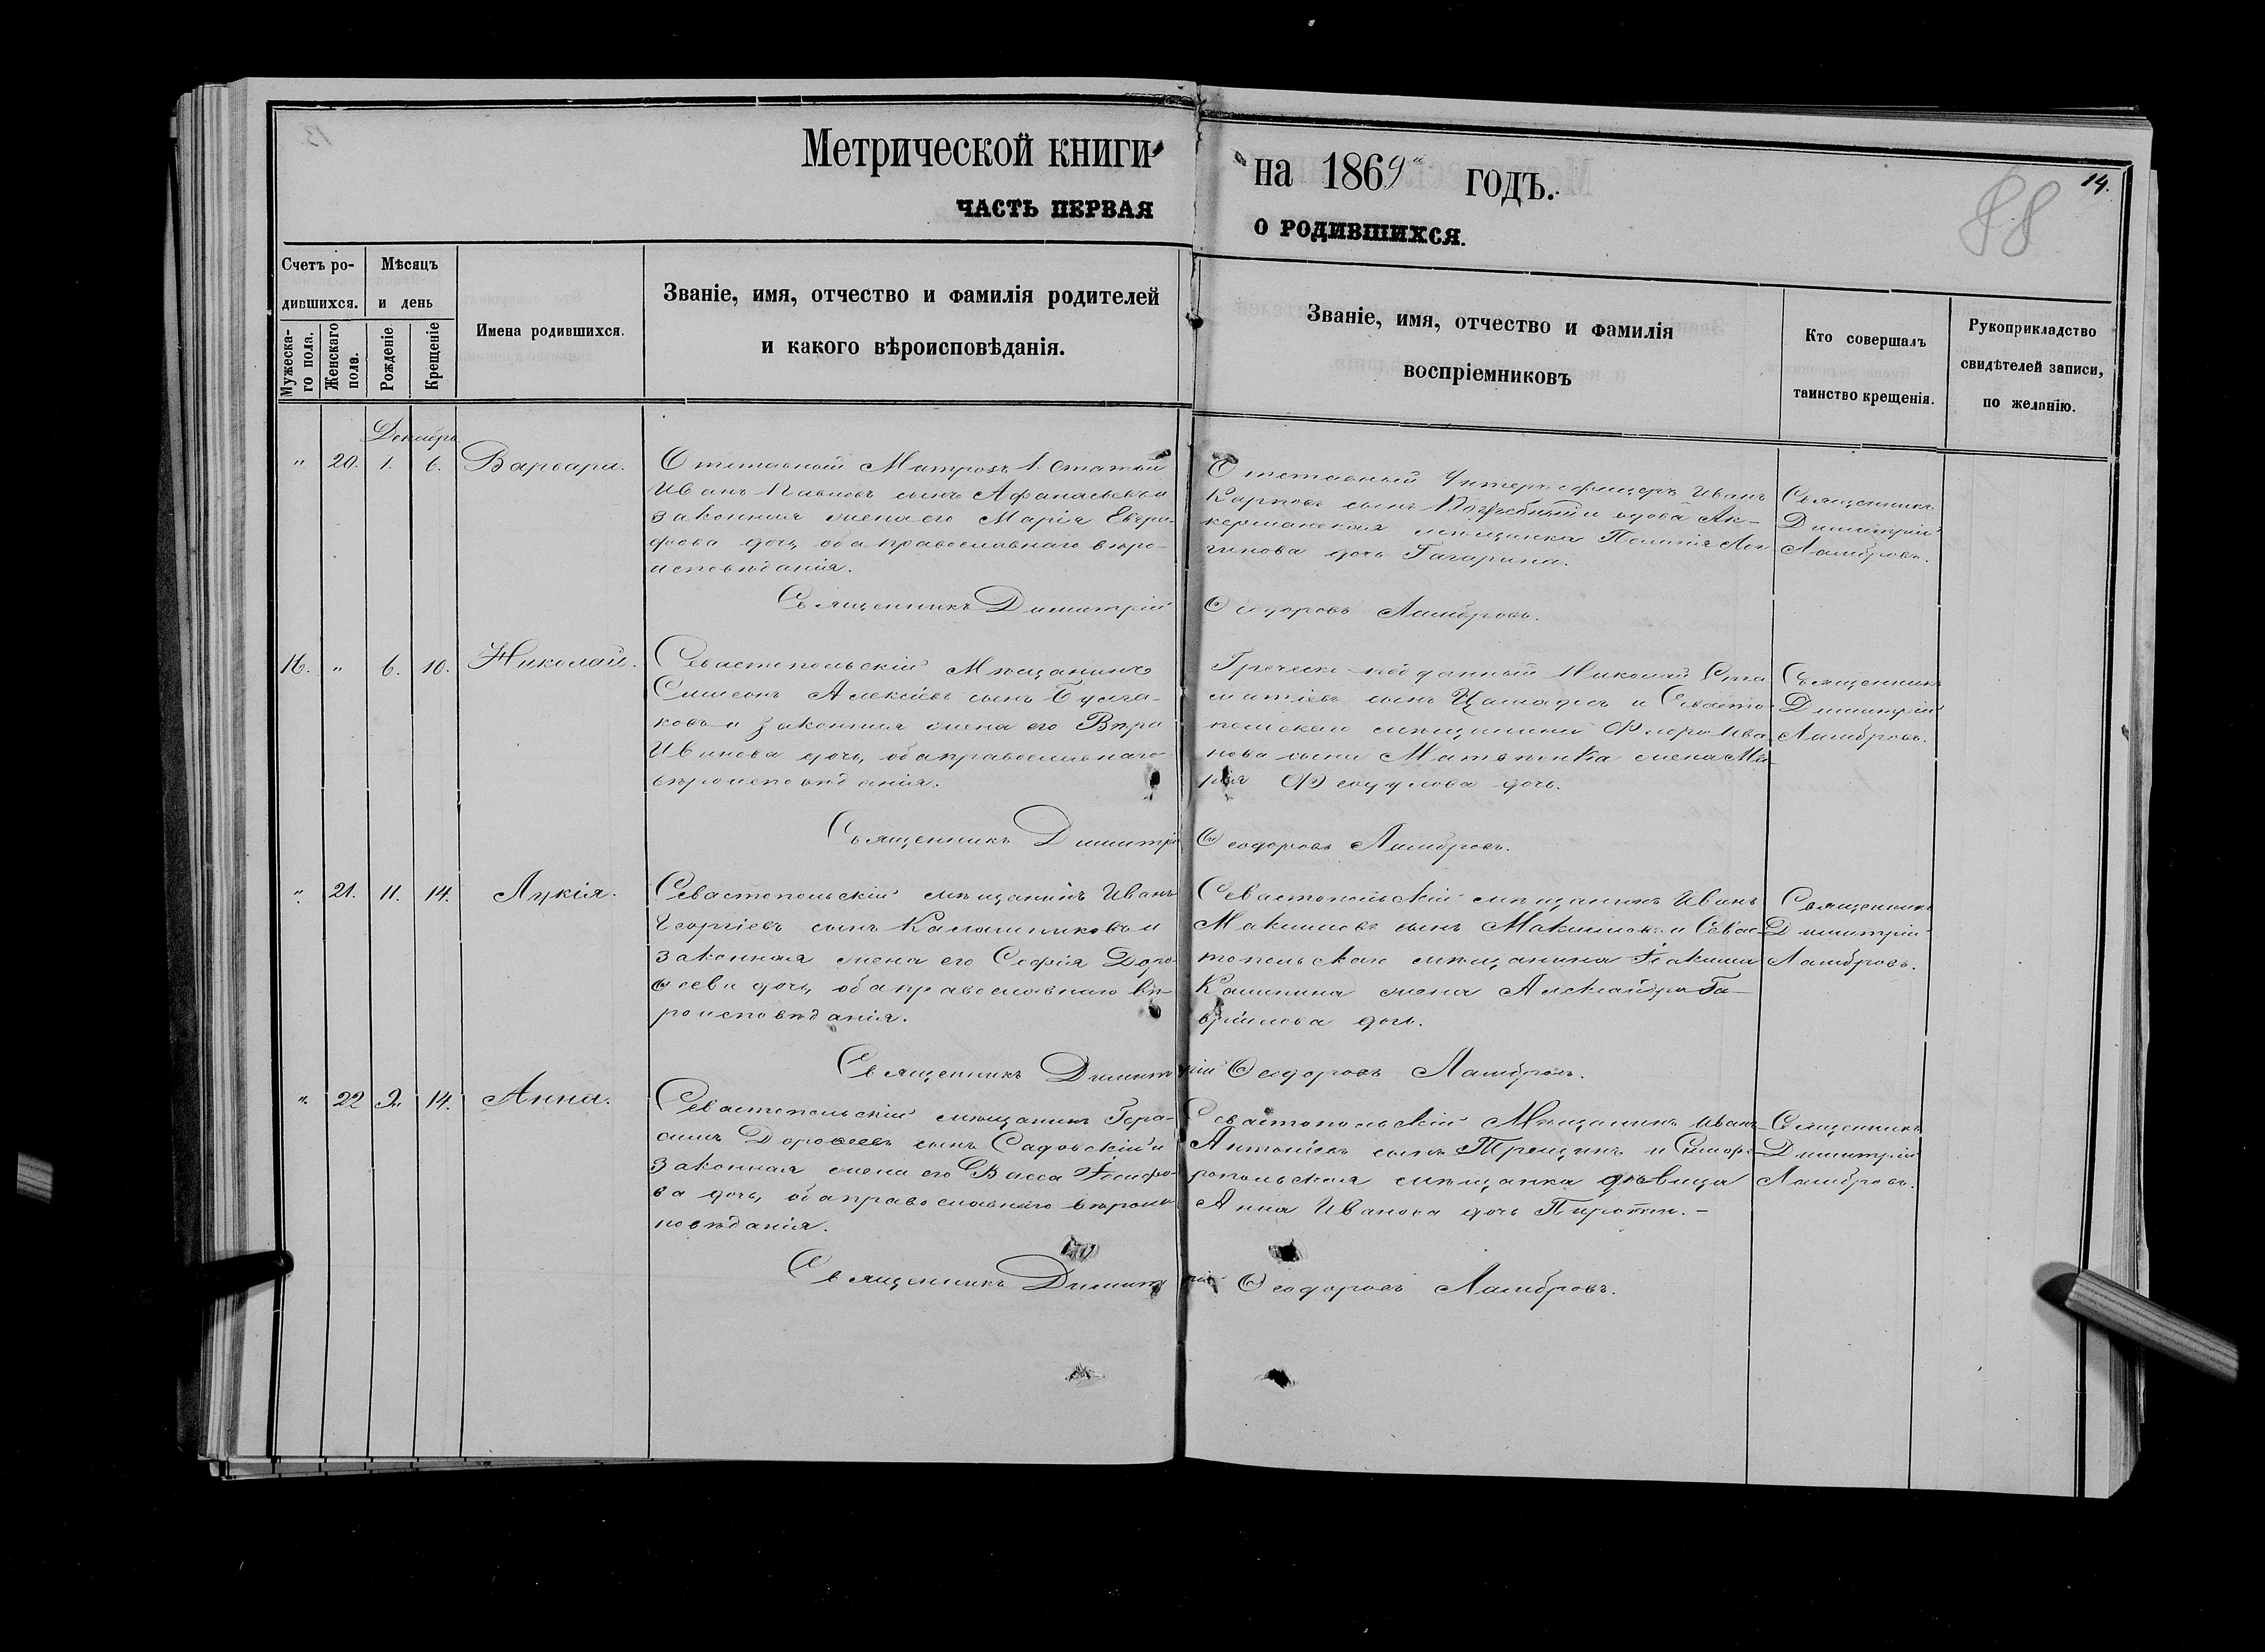 Метрической книги на 1869 годъ.
14.
88
ЧАСТЬ ПЕРВАЯ О РОДИВШИХСЯ.
Счетъ родившихся.
Мужескаго пола.
Женскаго пола.
Мѣсяцъ и день
Рожденіе
Крещеніе
Имена родившихся.
Званіе, имя, отчество и фамилія родителей
и какого вѣроисповѣданія.
Званіе, имя, отчество и фамилія
воспріемниковъ
Кто совершалъ
таинство крещенія.
Рукоприкладство
свидѣтелей записи,
по желанію.
Декабрь
" 20. 1. 6. Варвара.
Отставной Матрозъ 1. Статьи
Иванъ Павловъ сынъ Афанасьевъ и
законная жена его Марія Евгра-
фова дочь, оба православнаго вѣро-
исповѣданія.
Отставный Унтеръ-офицеръ Иванъ
Карповъ сынъ вдова Ак-
керманская мѣщанка Лон-
гинова дочь Гагарина.
Священникъ
Димитрій
Ламбровъ.
Священникъ Димитрій Ѳеодоровъ Ламбровъ.
16. " 6. 10. Николай.
Севастопольскій Мѣщанинъ
Симеонъ Алексѣевъ сынъ Булга-
ковъ и законная жена его Вѣра
Иванова дочь, оба православнаго
вѣроисповѣданія.
Греческо-подданный Николай Ста
матіевъ сынъ и Севасто-
польскаго мѣщанина Федора Ива-
нова сына жена Ма-
рія Федулова дочь.
Священникъ
Димитрій
Ламбровъ.
Священникъ Димитрій Ѳеодоровъ Ламбровъ.
" 21. 11. 14. Лукія.
Севастопольскій мѣщанинъ Иванъ
Георгіевъ сынъ Калашниковъ и
законная жена его Софія Доро-
ѳеева дочь, оба православнаго вѣ-
роисповѣданія.
Севастопольскій мѣщанинъ Иванъ
Максимовъ сынъ Максимовъ и Севас-
топольскаго мѣщанина Іоакима
Калинина жена Александра Га-
вріилова дочь.
Священникъ
Димитрій
Ламбровъ.
Священникъ Димитрій Ѳеодоровъ Ламбровъ.
" 22 14. Анна.
Севастопольскій мѣщанинъ Гера-
симъ Дороѳеевъ сынъ Садовскій и
законная жена его Васса Іосифо-
ва дочь, оба православнаго вѣроис-
повѣданія.
Севастопольскій Мѣщанинъ Иванъ
Антоніевъ сынъ Трещинъ и Симфе-
ропольская мѣщанка дѣвица
Анна Иванова дочь
Священникъ
Димитрій
Ламбровъ.
Священникъ Димитрій Ѳеодоровъ Ламбровъ.